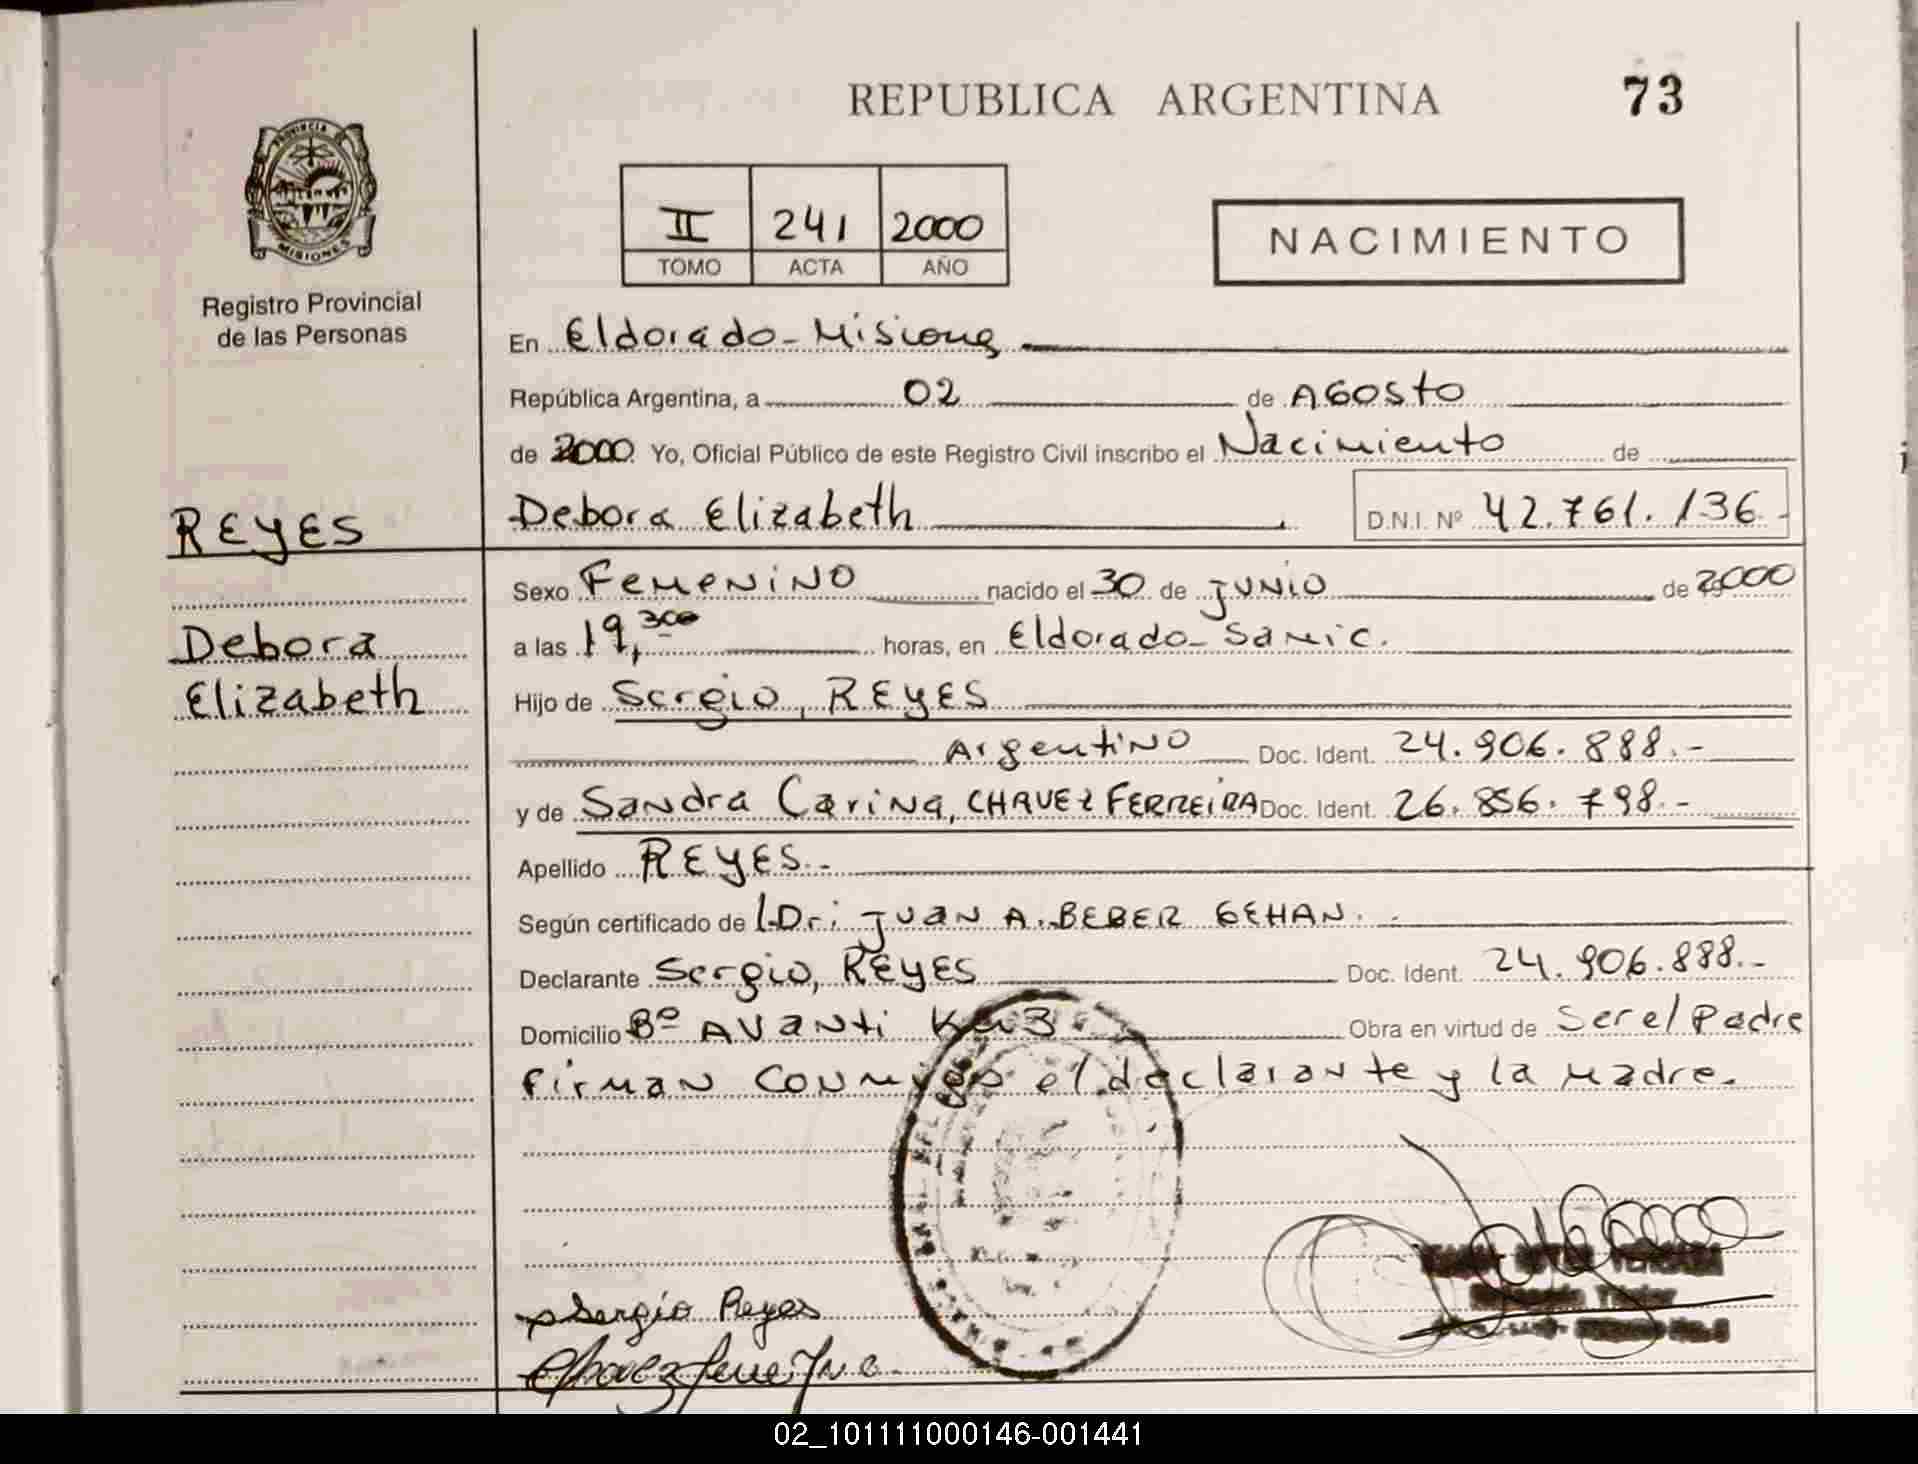 REPUBLICA ARGENTINA 73
PROVINCIA DE
MISIONES
Registro Provincial
de las Personas
II 241 2000
TOMO ACTA AÑO
NACIMIENTO
En Eldorado - Misiones
República Argentina, a 02 de AGOSTO
de 2000 Yo, Oficial Público de este Registro Civil inscribo el Nacimiento de
REYES
Debora Elizabeth D.N.I. Nº 42.761.136.-
Sexo Femenino nacido el 30 de JUNIO de 2000
Debora
a las 19,30 horas, en Eldorado - Samic.
Elizabeth
Hijo de Sergio, REYES
Argentino Doc. Ident. 24.906.888.-
y de Sandra Carina, CHAVEZ FERREIRA Doc. Ident. 26.856.798.-
Apellido REYES.-
Según certificado de Dr: Juan A. BEBER GEHAN.
Declarante Sergio, REYES Doc. Ident. 24.906.888.-
Domicilio Bº AVanti Km 3 Obra en virtud de Ser el Padre
Firman conmigo el declarante y la Madre.
Sergio Reyes
02_101111000146-001441